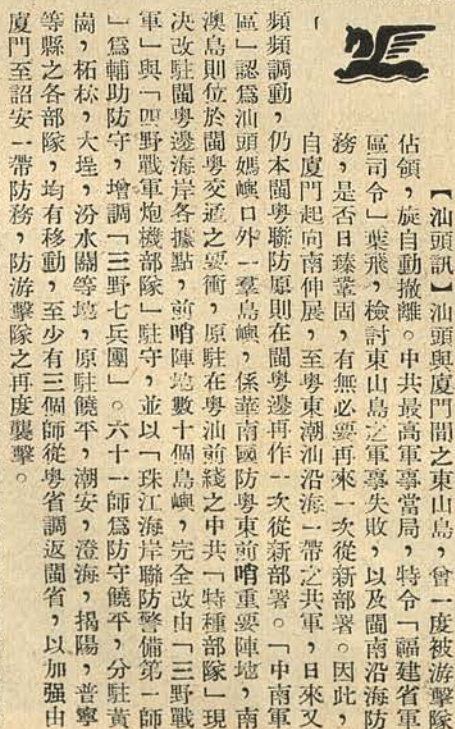 【汕頭訊】汕頭與廈門間之東山島，曾一度被游擊隊
佔領，旋自動撤離。中共最高軍事當局，特令「福建省軍
區司令」葉飛，檢討東山島之軍事失敗，以及閩南沿海防
務，是否日臻鞏固，有無必要再來一次從新部署。因此，
自廈門起向南伸展，至粵東潮汕沿海一帶之共軍，日來又
頻頻調動，仍本閩粵聯防原則在閩粵邊再作一次從新部署。「中南軍
區」認爲汕頭媽嶼口外一羣島嶼，係華南國防粵東前哨重要陣地，南
澳島則位於閩粵交通之要衝，原駐在粵汕前綫之中共「特種部隊」現
决改駐閩粵邊海岸各據點，前哨陣地數十個島嶼，完全改由「三野戰
軍」與「四野戰軍炮機部隊」駐守，並以「珠江海岸聯防警備第一師
」爲輔助防守，增調「三野七兵團」。六十一師爲防守饒平，分駐黃
崗，柘林，大埕，汾水關等地，原駐饒平，潮安，澄海，揭陽，普寧
等縣之各部隊，均有移動，至少有三個師從粵省調返閩省，以加强由
廈門至詔安一帶防務，防游擊隊之再度襲擊。